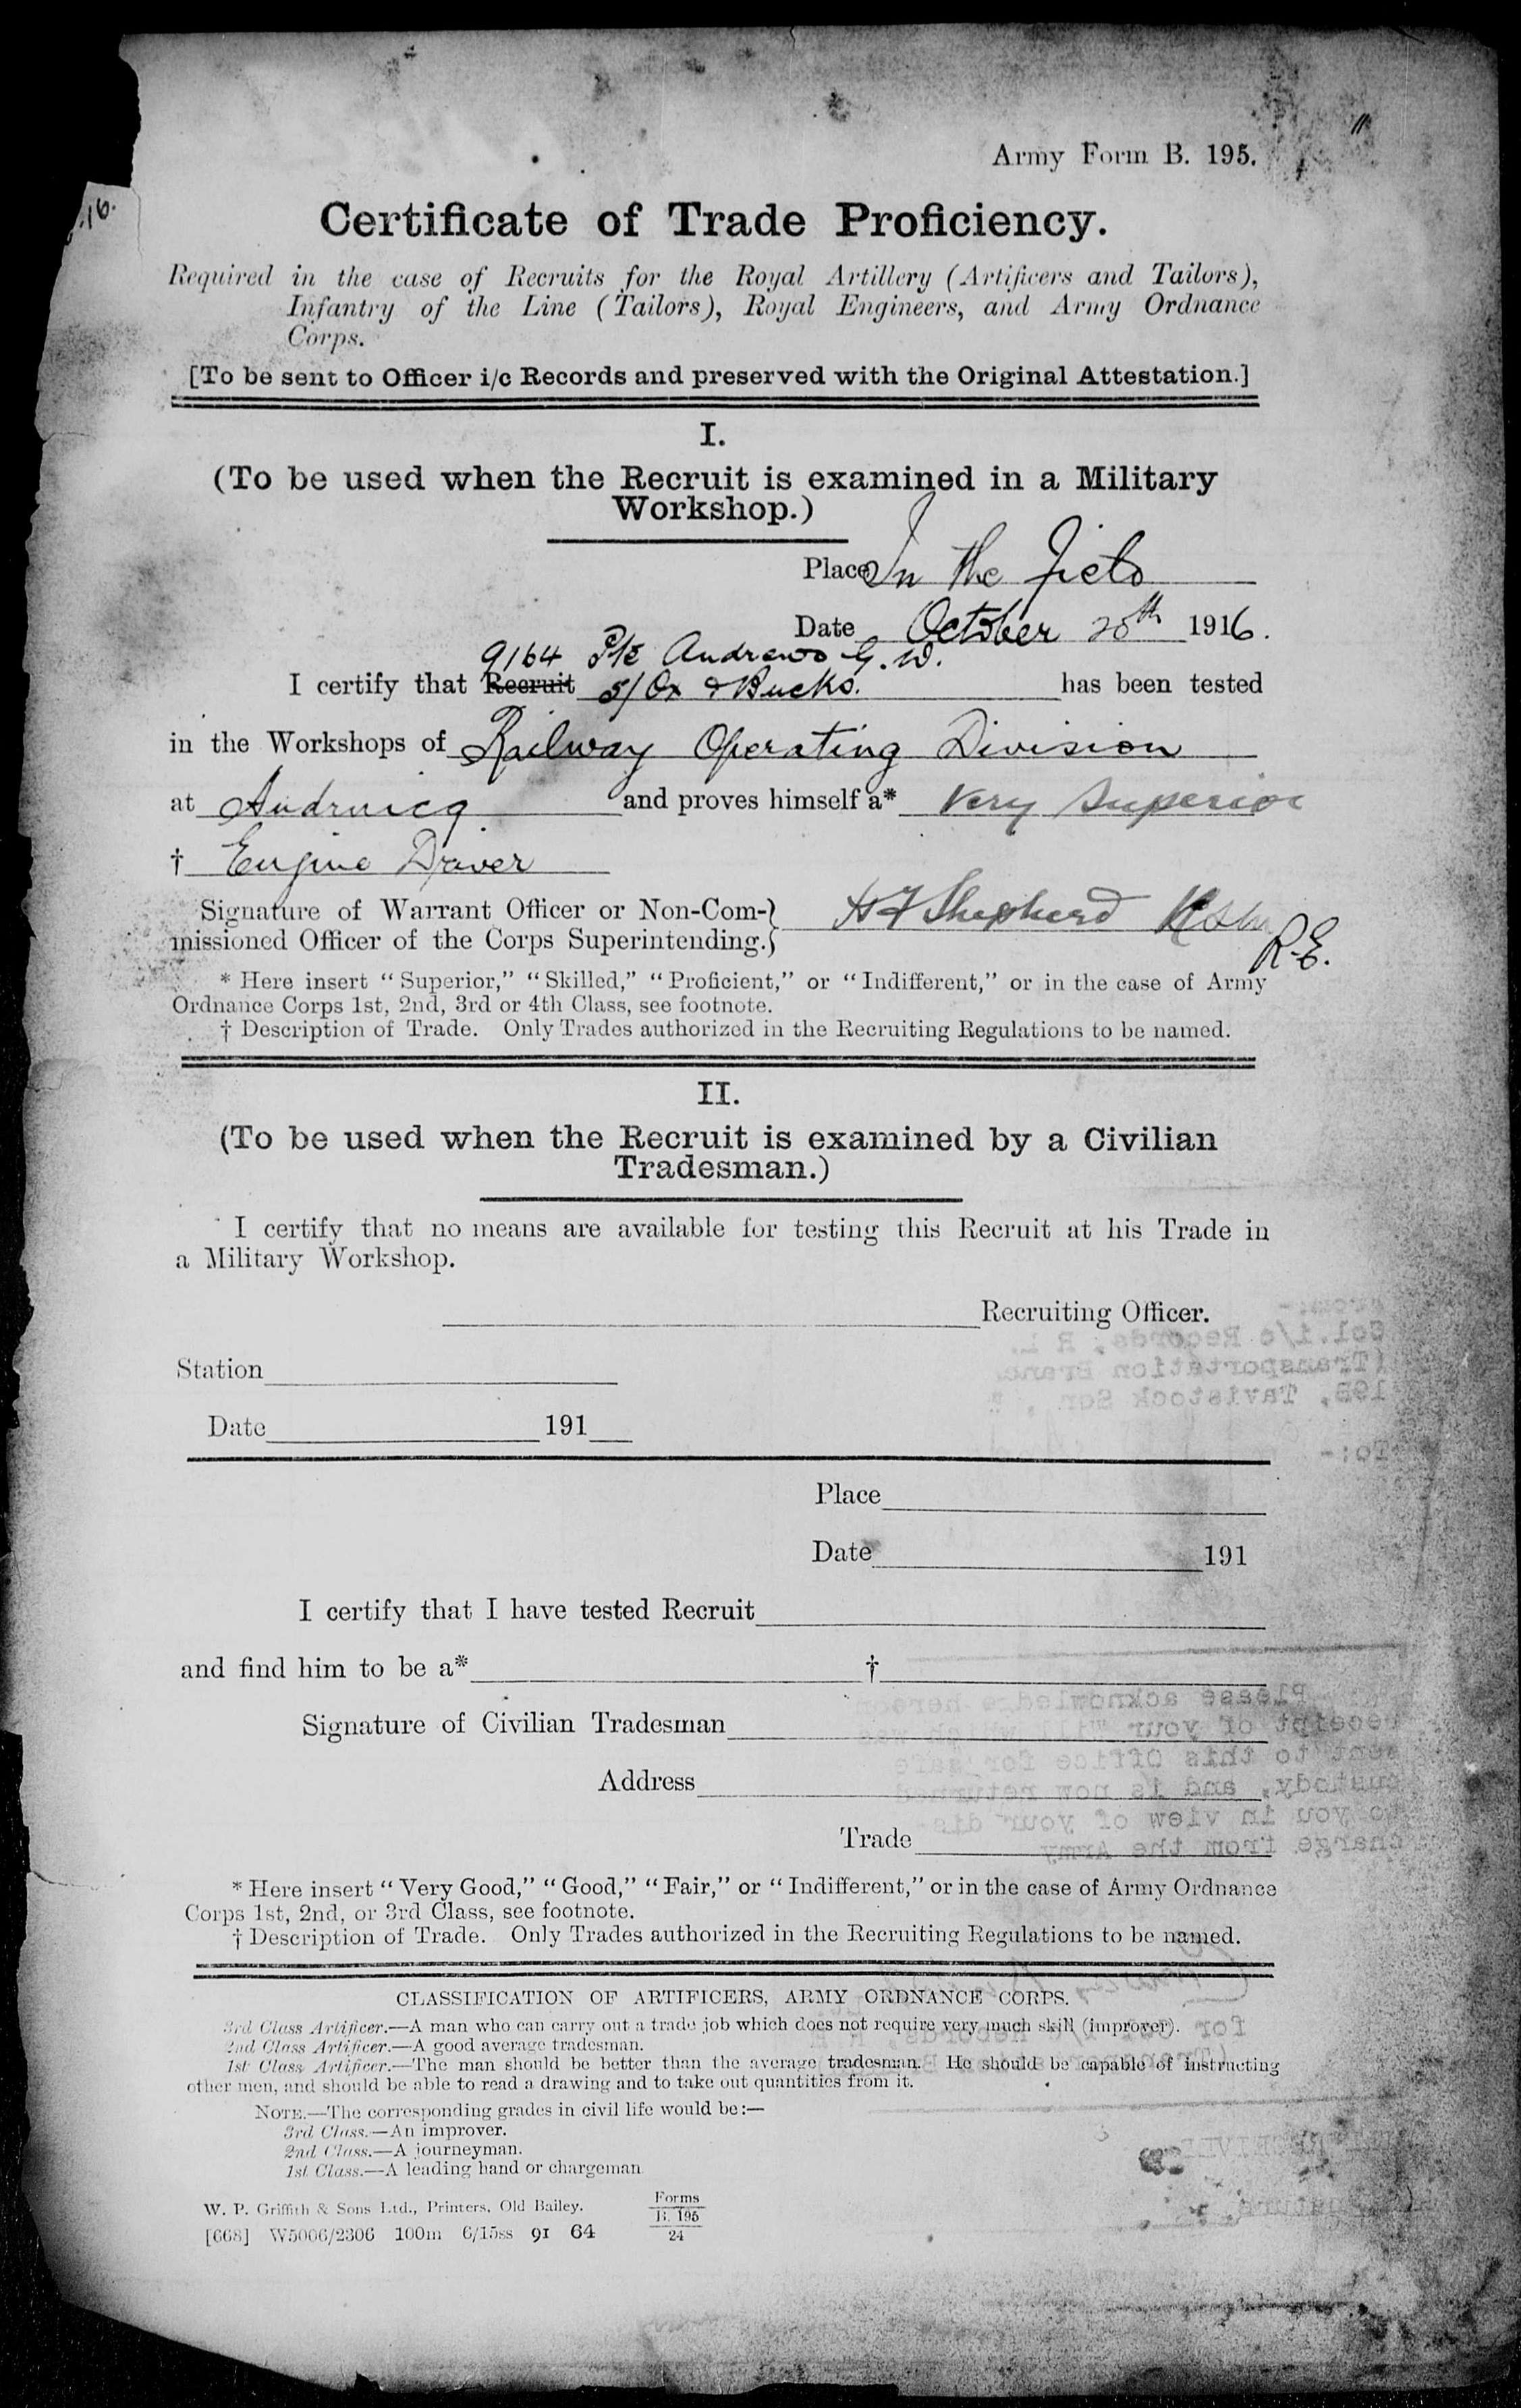 11
Army Form B. 195.
-16.
Certificate of Trade Proficiency.
Required in the case of Recruits for the Royal Artillery (Artificers and Tailors),
Infantry of the Line (Tailors), Royal Engineers, and Army Ordnance
Corps.
[To be sent to Officer i/c Records and preserved with the Original Attestation.]
I.
(To be used when the Recruit is examined in a Military
Workshop.)
Place In the Field
Date October 20th 1916.
9164 Pte Andrews G. W.
I certify that Recruit 5/Ox & Bucks. has been tested
in the Workshops of Railway Operating Division
at Audruicq and proves himself a* Very Superior
† Engine Driver
Signature of Warrant Officer or Non-Com-} H F Shepherd
missioned Officer of the Corps Superintending.} R.E.
* Here insert “Superior,” “Skilled,” “Proficient,” or “Indifferent,” or in the case of Army
Ordnance Corps 1st, 2nd, 3rd or 4th Class, see footnote.
† Description of Trade. Only Trades authorized in the Recruiting Regulations to be named.
II.
(To be used when the Recruit is examined by a Civilian
Tradesman.)
I certify that no means are available for testing this Recruit at his Trade in
a Military Workshop.
Recruiting Officer.
Station
Date 191
Place
Date 191
I certify that I have tested Recruit
and find him to be a* †
Signature of Civilian Tradesman
Address
Trade
* Here insert “Very Good,” “Good,” “Fair,” or “Indifferent,” or in the case of Army Ordnance
Corps 1st, 2nd, or 3rd Class, see footnote.
† Description of Trade. Only Trades authorized in the Recruiting Regulations to be named.
CLASSIFICATION OF ARTIFICERS, ARMY ORDNANCE CORPS.
3rd Class Artificer.—A man who can carry out a trade job which does not require very much skill (improver).
2nd Class Artificer.—A good average tradesman.
1st Class Artificer.—The man should be better than the average tradesman. He should be capable of instructing
other men, and should be able to read a drawing and to take out quantities from it.
NOTE.—The corresponding grades in civil life would be:—
3rd Class.—An improver.
2nd Class.—A journeyman.
1st Class.—A leading hand or chargeman
W. P. Griffith & Sons Ltd., Printers, Old Bailey.
[668] W5006/2306 100m 6/15ss 91 64
Forms
B. 195
24